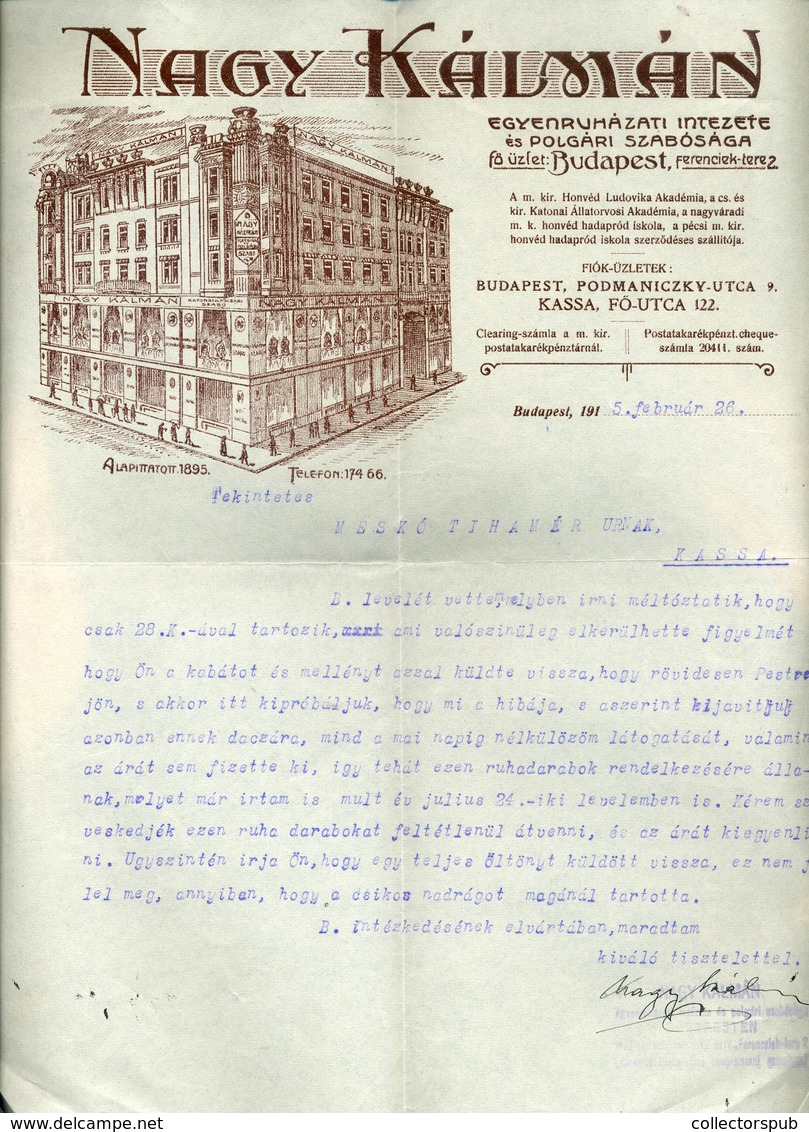 NAGY KÁLMÁN
EGYENRUHÁZATI INTÉZETE
és POLGÁRI SZABÓSÁGA
fő üzlet: Budapest, Ferenciek-tere 2
A m. kir. Honvéd Ludovika Akadémia, a cs. és
kir. Katonai Állatorvosi Akadémia, a nagyváradi
m. k. honvéd hadapród iskola, a pécsi m. kir.
honvéd hadapród iskola szerződéses szállítója.
FIÓK-ÜZLETEK:
BUDAPEST, PODMANICZKY-UTCA 9.
KASSA, FŐ-UTCA 122.
Clearing-számla a m. kir.
postatakarékpénztárnál.
Postatakarékpénzt. cheque-
számla 20411. szám.
NAGY KÁLMÁN
NAGY KÁLMÁN
NAGY KÁLMÁN
NAGY KÁLMÁN
ALAPITTATOTT. 1895.
TELEFON: 174 66.
Budapest, 191 5. február 26.
Tekintetes
MESKÓ TIHAMÉR URNAK,
KASSA.
B. levelét vettem, melyben irni méltóztatik, hogy
csak 28.K.-ával tartozik, ami valószinüleg elkerülhette figyelmét
hogy Ön a kabátot és mellényt azzal küldte vissza, hogy rövidesen Pestre
jön, s akkor itt kipróbáljuk, hogy mi a hibája, s aszerint kijavitjuk
azonban ennek daczára, mind a mai napig nélkülözöm látogatását, valamin
az árát sem fizette ki, igy tehát ezen ruhadarabok rendelkezésére álla-
nak, melyet már irtam is mult év julius 24.-iki levelemben is. Kérem sz
veskedjék ezen ruha darabokat feltétlenül átvenni, és az árát kiegyenli
ni. Ugyszintén irja Ön, hogy egy teljes öltönyt küldött vissza, ez nem j
lel meg, annyiban, hogy a csikos nadrágot magánál tartotta.
B. intézkedésének elvártában, maradtam
kiváló tisztelettel.
NAGY KÁLMÁN
collectorspub